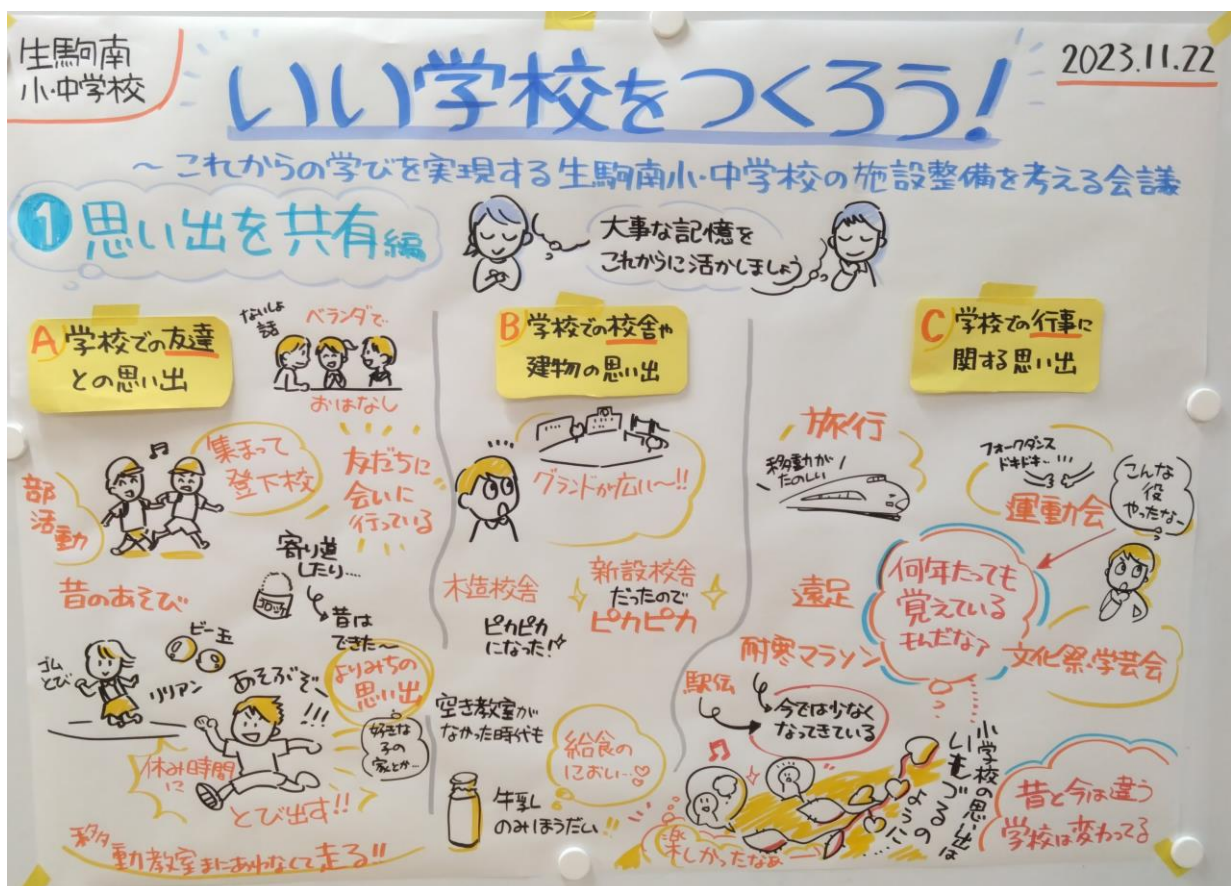 生駒南
小・中学校
いい学校をつくろう!
2023.11.22
～これからの学びを実現する生駒南小・中学校の施設整備を考える会議
1 思い出を共有編
大事な記憶を
これからに活かしましょう
A 学校での友達
との思い出
ないしょ
話
ベランダで
おはなし
集まって
登下校
部活動
友だちに
会いに
行っている
昔のあそび
寄り道
したり…
コロッケ
昔は
できた～
ゴム
とび
ビー玉
リリアン
あそぶぞー
!!!
よりみちの
思い出
好きな
子の
家とか…
休み時間
に
とび出す!!
移動教室まにあわなくて走る!!
B 学校での校舎や
建物の思い出
グランドが広い～!!
木造校舎
ピカピカ
になった!
新設校舎
だったので
ピカピカ
空き教室が
なかった時代も
給食の
におい…♡
牛乳
のみほうだい!!
C 学校での行事に
関する思い出
旅行
移動が
たのしい
フォークダンス
ドキドキ…
運動会
こんな
役
やったなー
遠足
何年たっても
覚えている
もんだなァ
文化祭・学芸会
耐寒マラソン
駅伝
今では少なく
なってきている
小学校の思い出は
いもづるの
ように…
楽しかったなぁ
昔と今は違う
学校は変わってる